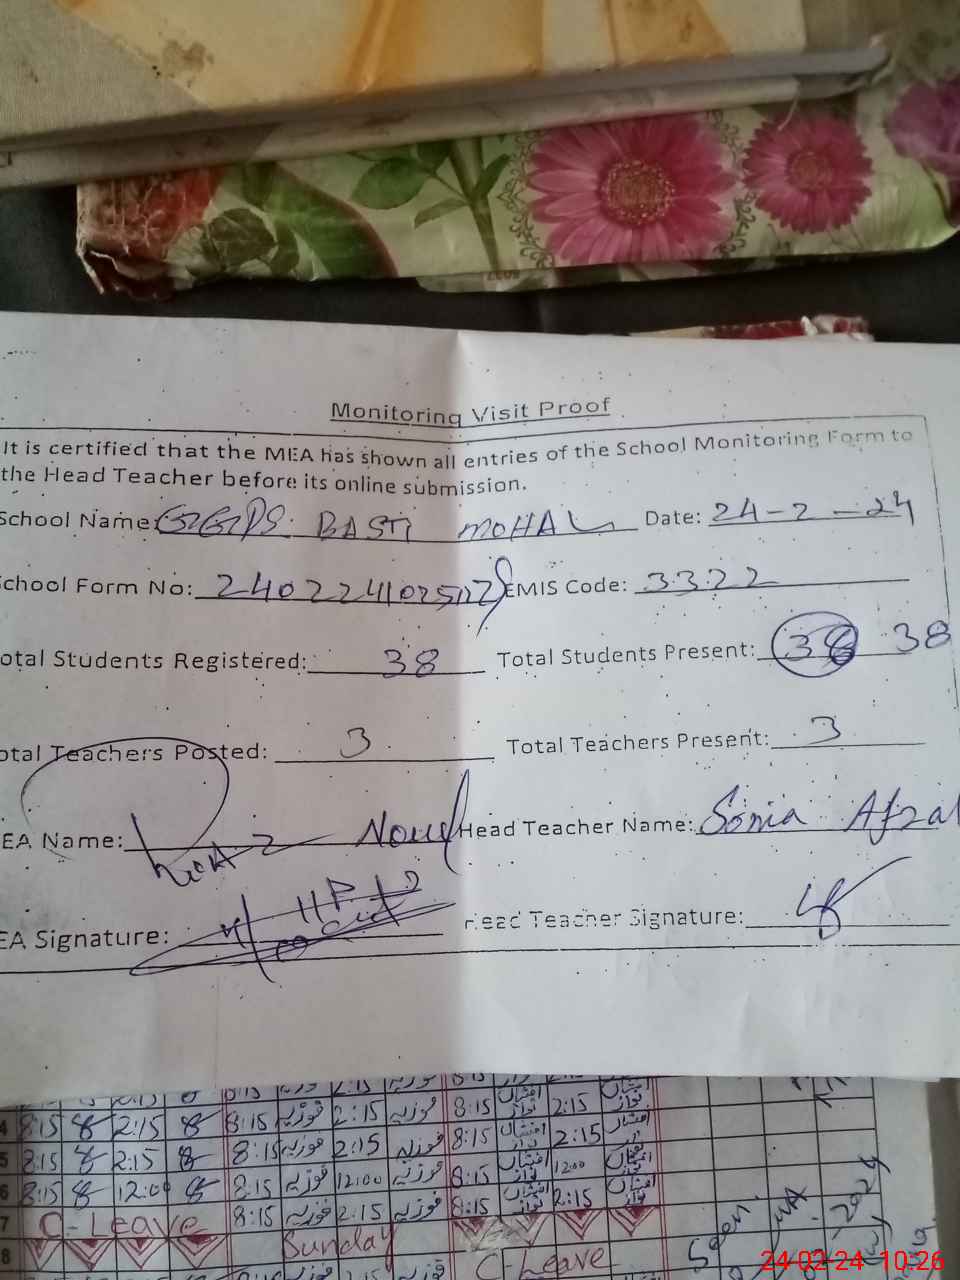 Monitoring Visit Proof
It is certified that the MEA has shown all entries of the School Monitoring Form to
the Head Teacher before its online submission.
School Name: GGPS BASTI MOHAL Date: 24-2-24
School Form No: EMIS Code: 3322
otal Students Registered: 38 Total Students Present: 38 38
otal Teachers Posted: 3 Total Teachers Present: 3
EA Name: Head Teacher Name: Sonia Afzal
EA Signature: Head Teacher Signature:
4 8:15 2:15 8:15 فوزیہ 2:15 فوزیہ 8:15 افشاں نواز 2:15 افشاں نواز
5 8:15 2:15 8:15 فوزیہ 2:15 فوزیہ 8:15 افشاں نواز 2:15
6 8:15 12:00 8:15 فوزیہ 12:00 فوزیہ 8:15 افشاں نواز 12:00 افشاں نواز
7 C-Leave 8:15 فوزیہ 2:15 فوزیہ 8:15 افشاں نواز 2:15 افشاں نواز
8 Sunday C-Leave Seen
24-02-24 10:26